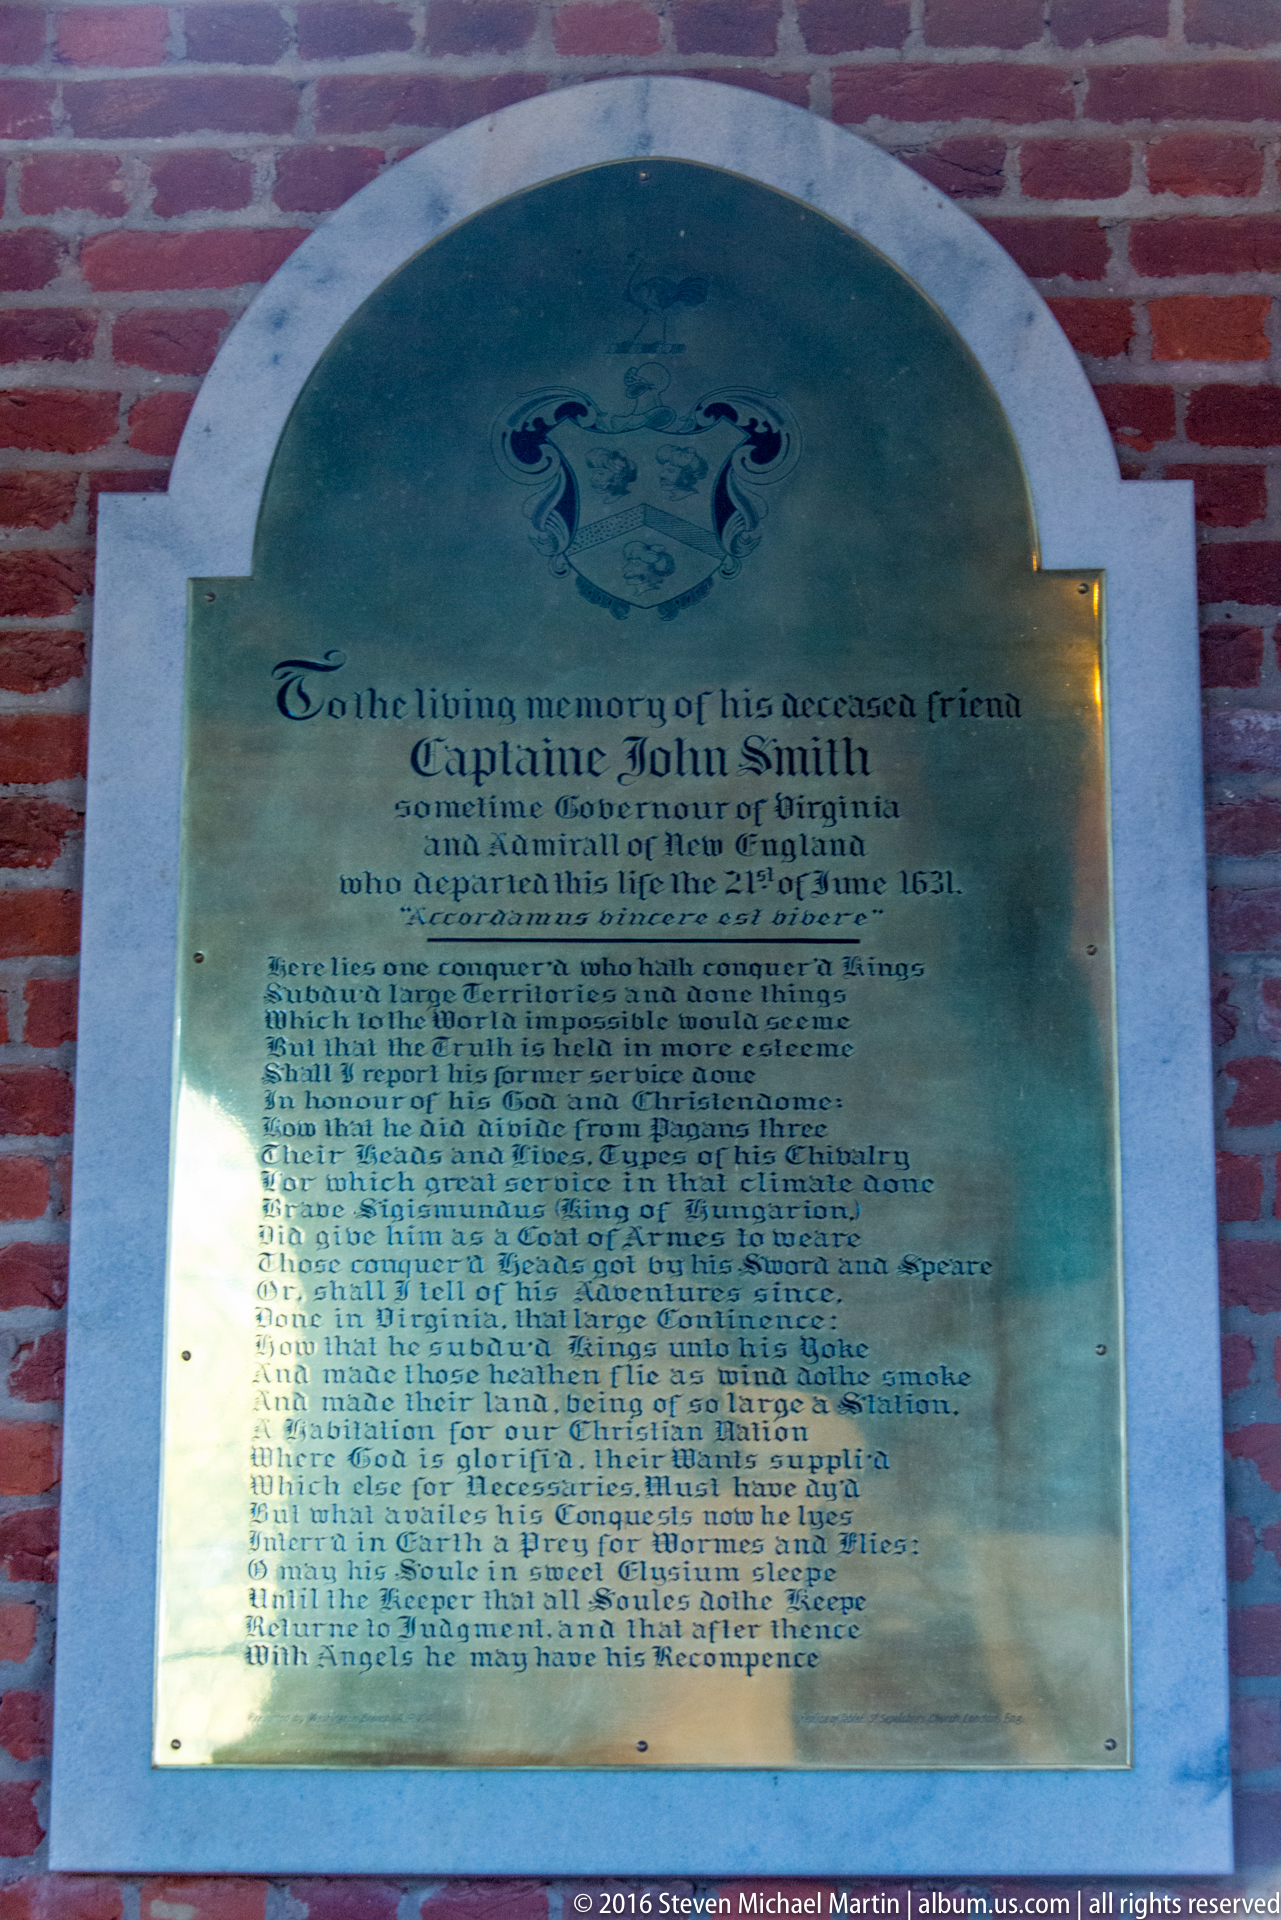 To the living memory of his deceased friend
Captaine John Smith
sometime Governour of Virginia
and Admirall of New England
who departed this life the 21st of June 1631.
"Accordamus vincere est vivere"
Here lies one conquer'd who hath conquer'd Kings
Subdu'd large Territories and done things
Which to the World impossible would seeme
But that the Truth is held in more esteeme
Shall I report his former service done
In honour of his God and Christendome:
How that he did divide from Pagans three
Their Heads and Lives, Types of his Chivalry
For which great service in that climate done
Brave Sigismundus (King of Hungarion,)
Did give him as a Coat of Armes to weare
Those conquer'd Heads got by his Sword and Speare
Or, shall I tell of his Adventures since,
Done in Virginia, that large Continence:
How that he subdu'd Kings unto his Yoke
And made those heathen flie as wind dothe smoke
And made their land, being of so large a Station,
A Habitation for our Christian Nation
Where God is glorifi'd, their Wants suppli'd
Which else for Necessaries, Must have dy'd
But what availes his Conquests now he lyes
Interr'd in Earth a Prey for Wormes and Flies:
O may his Soule in sweet Elysium sleepe
Until the Keeper that all Soules dothe Keepe
Returne to Judgment, and that after thence
With Angels he may have his Recompence
Presented by Washington
Tablet St Sepulchre's Church London, Eng.
© 2016 Steven Michael Martin | album.us.com | all rights reserved